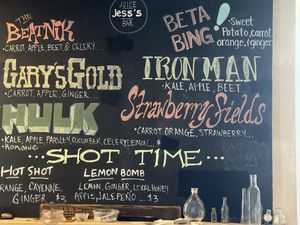 JUICE
Jess's
BAR
THE
BEATNIK
- CARROT, APPLE, BEET & CELERY...
GARY'S GOLD
- CARROT, APPLE, GINGER....
HULK
- KALE, APPLE, PARSLEY, CUCUMBER, CELERY, LEMON,
BETA
BING!
- Sweet
Potato, carrot,
orange, ginger
IRON MAN
- KALE, APPLE, BEET...
Strawberry Fields
- CARROT, ORANGE, STRAWBERRY...
...SHOT TIME...
HOT SHOT
RANGE, CAYENNE,
GINGER $3
LEMON BOMB
LEMON, GINGER, LOCAL HONEY
JALAPEÑO ...$3